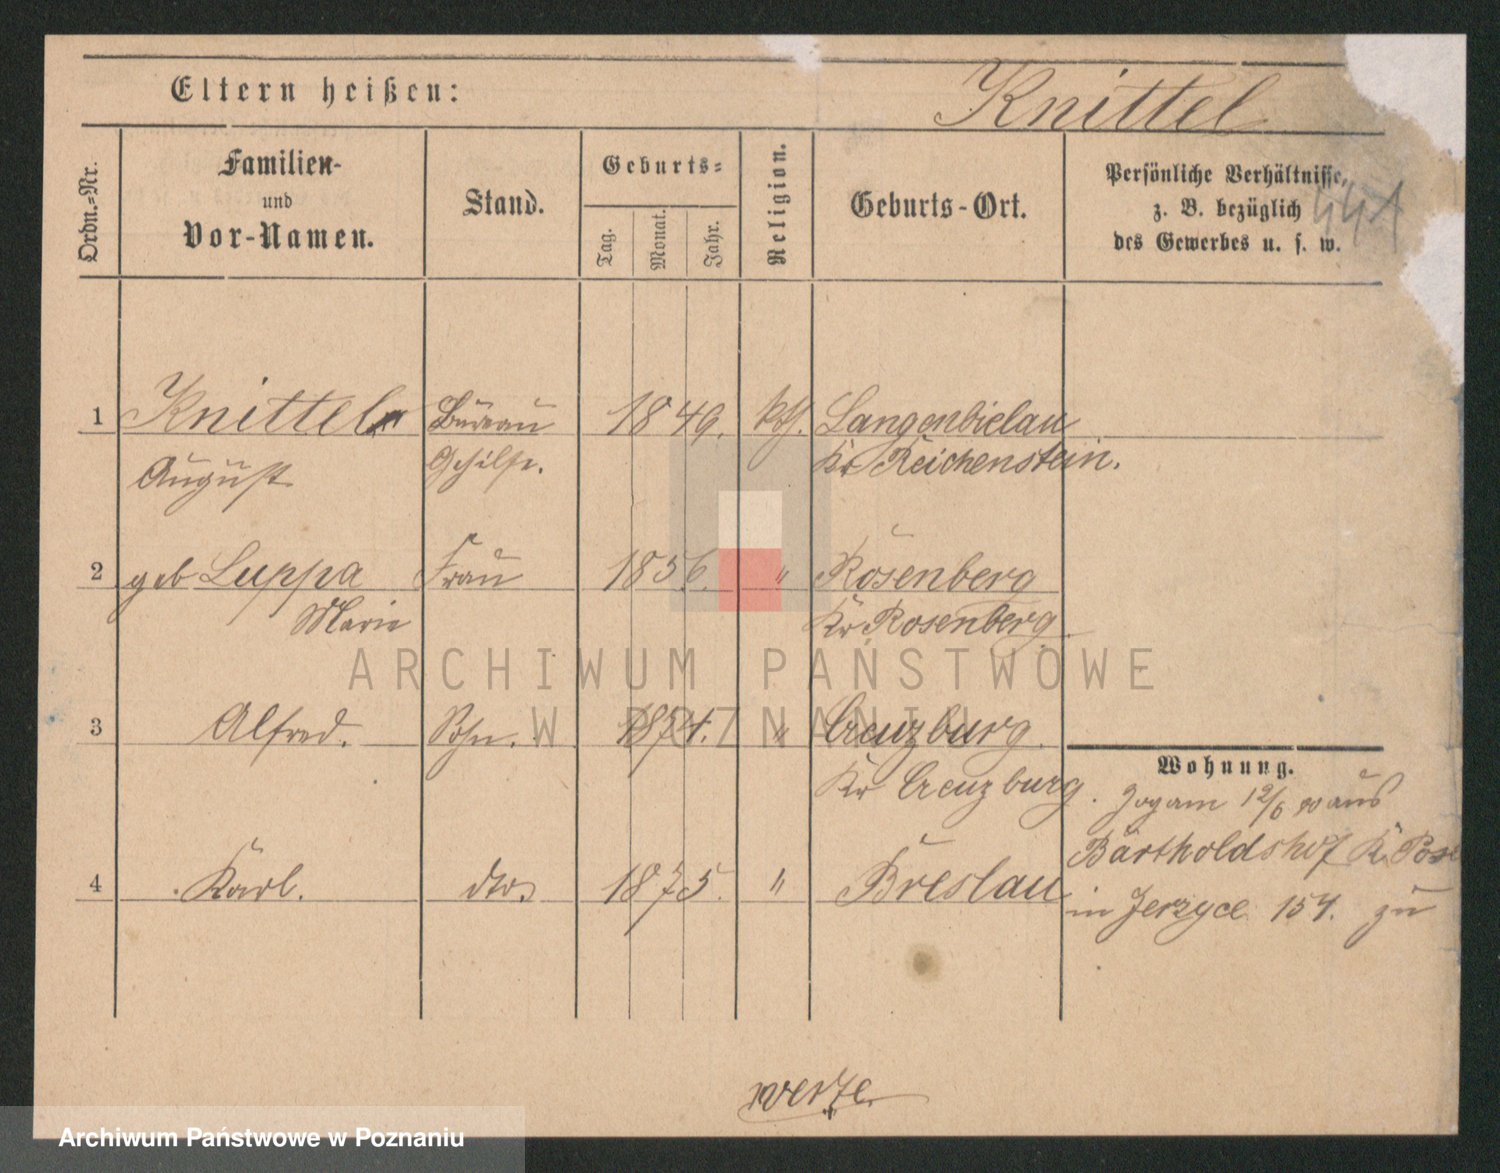 Eltern heißen:
Knittel
Ordn.-Nr.
Familien-
und
Vor-Namen.
Stand.
Geburts-
Tag.
Monat.
Jahr.
Religion.
Geburts-Ort.
Persönliche Verhältnisse,
z. B. bezüglich
des Gewerbes u. s. w.
441
1 Knittel Büreau 1849. kth. Langenbielau
August Gehilfe. Kr Reichenstein.
2 geb Luppa Frau 1856. " Rosenberg
Marie Kr. Rosenberg
3 Alfred. Sohn. 1874. " Creuzburg
Kr Creuzburg.
Wohnung.
Zog am 12/6 90 aus
Bartholdshof K. Pose
4 Karl. dto. 1875. " Breslau
in Jerzyce 154. zu
ARCHIWUM PAŃSTWOWE
W POZNANIU
Archiwum Państwowe w Poznaniu